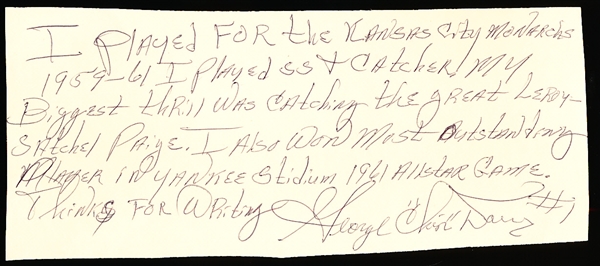 I Played FOR the Kansas City Monarchs
1959-61 I Played SS & Catcher. My
Biggest thrill was catching the great Leroy-
Satchel Paige. I Also Won Most Outstanding
Player in Yankee Stidium 1961 Allstar Game.
Thinks For Writing George
#1